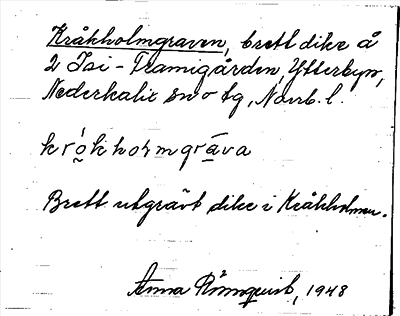 Kråkholmgraven, brett dike å
2 Isi-Framigården, Ytterbyn,
Nederkalix sn o tg, Norrb. l.
krókholmgrava
Brett utgrävt dike i Kråkholmen.
Anna Rönnquist, 1948